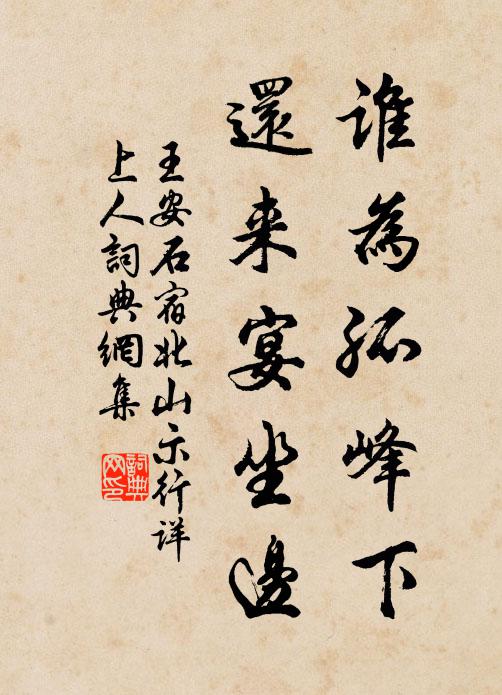 誰為孤峰下
還来宴坐邊
王安石宿北山示行詳
上人詞典網集
詞典
网印